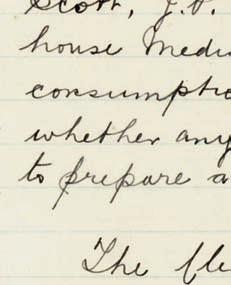 Scott, J.P.
house Medi
consumptio
whether any
to prepare a
The fle